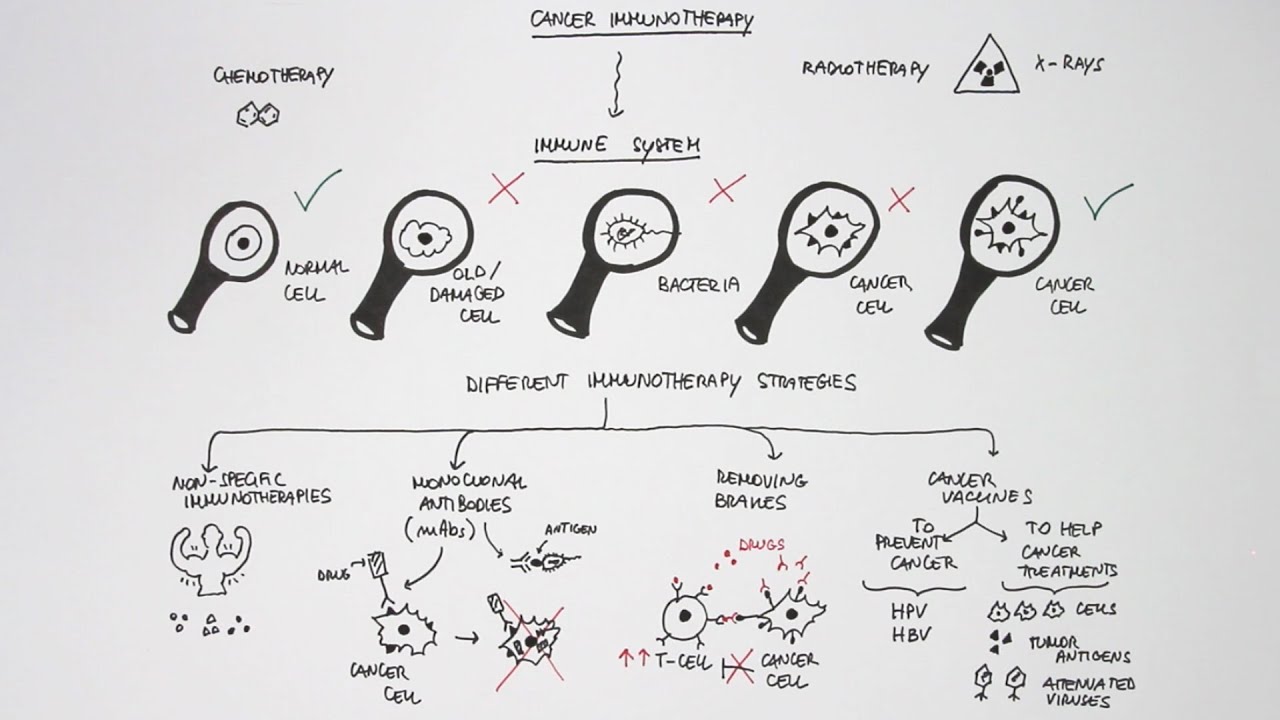 CANCER IMMUNOTHERAPY
CHEMOTHERAPY
RADIOTHERAPY
X-RAYS
IMMUNE SYSTEM
NORMAL
CELL
OLD/
DAMAGED
CELL
BACTERIA
CANCER
CELL
CANCER
CELL
DIFFERENT IMMUNOTHERAPY STRATEGIES
NON-SPECIFIC
IMMUNOTHERAPIES
MONOCLONAL
ANTIBODIES
(mAbs)
ANTIGEN
DRUG
CANCER
CELL
REMOVING
BRAKES
DRUGS
T-CELL
CANCER
CELL
CANCER
VACCINES
TO
PREVENT
CANCER
HPV
HBV
TO HELP
CANCER
TREATMENTS
CELLS
TUMOR
ANTIGENS
ATTENUATED
VIRUSES